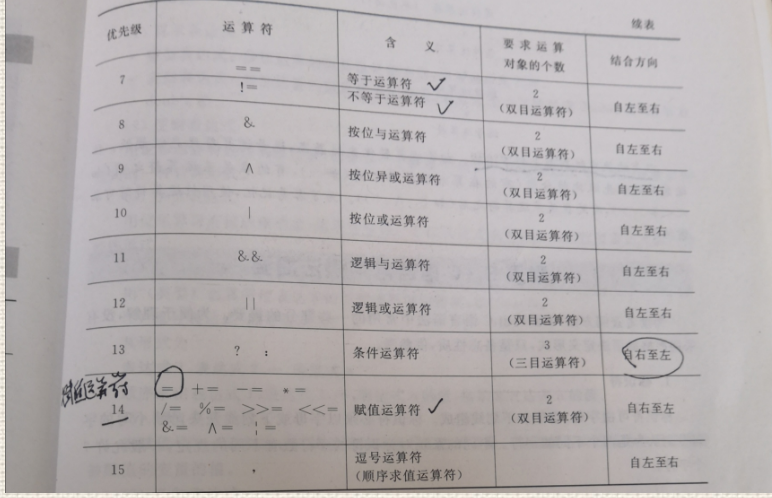 续表
优先级 运算符 含义 要求运算对象的个数 结合方向
7 == 等于运算符 2 (双目运算符) 自左至右
!= 不等于运算符
8 & 按位与运算符 2 (双目运算符) 自左至右
9 ∧ 按位异或运算符 2 (双目运算符) 自左至右
10 | 按位或运算符 2 (双目运算符) 自左至右
11 && 逻辑与运算符 2 (双目运算符) 自左至右
12 || 逻辑或运算符 2 (双目运算符) 自左至右
13 ? : 条件运算符 3 (三目运算符) 自右至左
赋值运算符
14 = += -= *= 赋值运算符 2 (双目运算符) 自右至左
/= %= >>= <<=
&= ∧= ¦=
15 , 逗号运算符 自左至右
(顺序求值运算符)